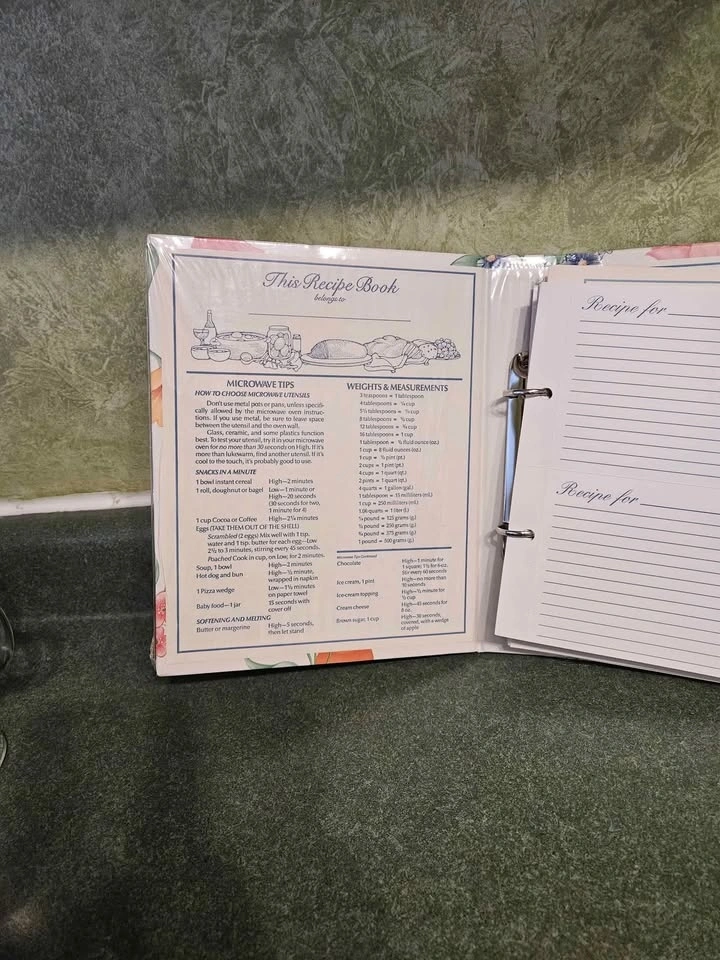 This Recipe Book
belongs to
MICROWAVE TIPS
HOW TO CHOOSE MICROWAVE UTENSILS
Don't use metal pots or pans, unless specifi-
cally allowed by the microwave oven instruc-
tions. If you use metal, be sure to leave space
between the utensil and the oven wall.
Glass, ceramic, and some plastics function
best. To test your utensil, try it in your microwave
oven for no more than 30 seconds on High. If it's
more than lukewarm, find another utensil. If it's
cool to the touch, it's probably good to use.
SNACKS IN A MINUTE
1 bowl instant cereal High—2 minutes
1 roll, doughnut or bagel Low—1 minute or
High—20 seconds
(30 seconds for two,
1 minute for 4)
1 cup Cocoa or Coffee High—2¼ minutes
Eggs (TAKE THEM OUT OF THE SHELL)
Scrambled (2 eggs) Mix well with 1 tsp.
water and 1 tsp. butter for each egg—Low
2½ to 3 minutes, stirring every 45 seconds.
Poached Cook in cup, on Low, for 2 minutes.
Soup, 1 bowl High—2 minutes
Hot dog and bun High—½ minute,
wrapped in napkin
1 Pizza wedge Low—1½ minutes
on paper towel
Baby food—1 jar 15 seconds with
cover off
SOFTENING AND MELTING
Butter or margerine High—5 seconds,
then let stand
WEIGHTS & MEASUREMENTS
3 teaspoons = 1 tablespoon
4 tablespoons = ¼ cup
5⅓ tablespoons = ⅓ cup
8 tablespoons = ½ cup
12 tablespoons = ¾ cup
16 tablespoons = 1 cup
1 tablespoon = ½ fluid ounce (oz.)
1 cup = 8 fluid ounces (oz.)
1 cup = ½ pint (pt.)
2 cups = 1 pint (pt.)
4 cups = 1 quart (qt.)
2 pints = 1 quart (qt.)
4 quarts = 1 gallon (gal.)
1 tablespoon = 15 milliliters (mL)
1 cup = 250 milliliters (mL)
1.06 quarts = 1 liter (l.)
¼ pound = 125 grams (g.)
½ pound = 250 grams (g.)
¾ pound = 375 grams (g.)
1 pound = 500 grams (g.)
Microwave Tips Continued
Chocolate High—1 minute for
1 square; 1½ for 6 oz.
Stir every 60 seconds
Ice cream, 1 pint High—no more than
10 seconds
Ice-cream topping High—½ minute for
½ cup
Cream cheese High—45 seconds for
8 oz.
Brown sugar, 1 cup High—30 seconds,
covered, with a wedge
of apple
Recipe for
Recipe for